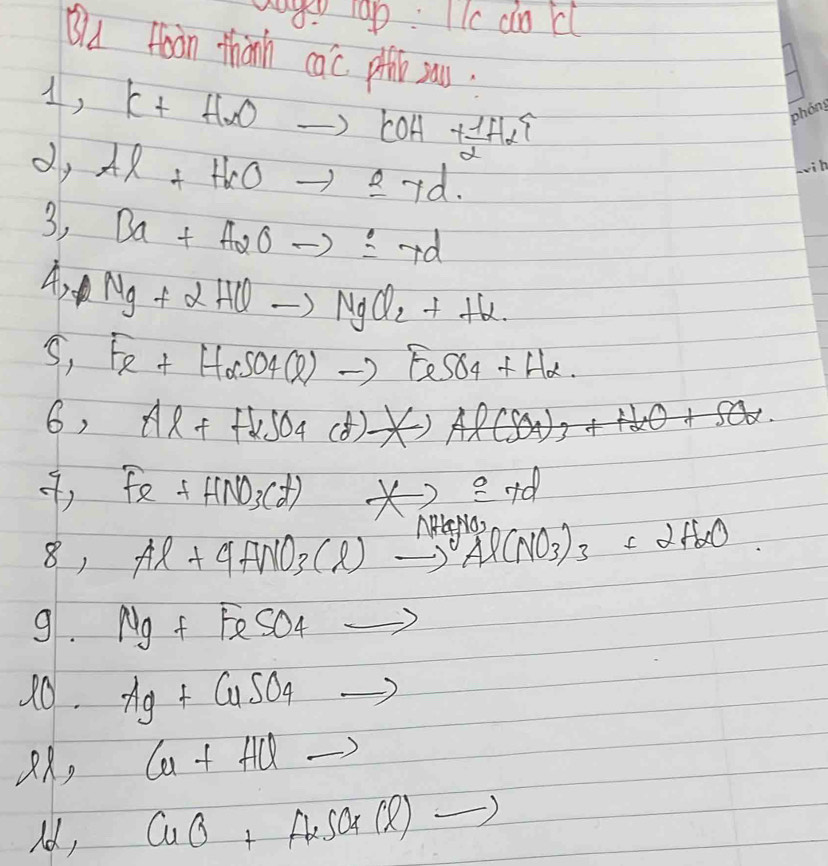 Luyện tập : T/c của kl
Bài 1 Hoàn thành các pthh sau :
1, K + H2O → KOH + 1/2 H2↑
2, Al + H2O → 0 pứ.
3, Ba + H2O → 0 pứ
4, Mg + 2HCl → MgCl2 + H2.
5, Fe + H2SO4(l) → FeSO4 + H2.
6, Al + H2SO4 (đ) Al(SO4)3 + H2O + SO2.
7, Fe + HNO3(đ) 0 pứ
NH4NO3
8, Al + 4HNO3(l) → Al(NO3)3 + 2H2O.
9. Mg + FeSO4 →
10. Ag + CuSO4 →
11, Cu + HCl →
12, CuO + H2SO4 (l) →
phóng